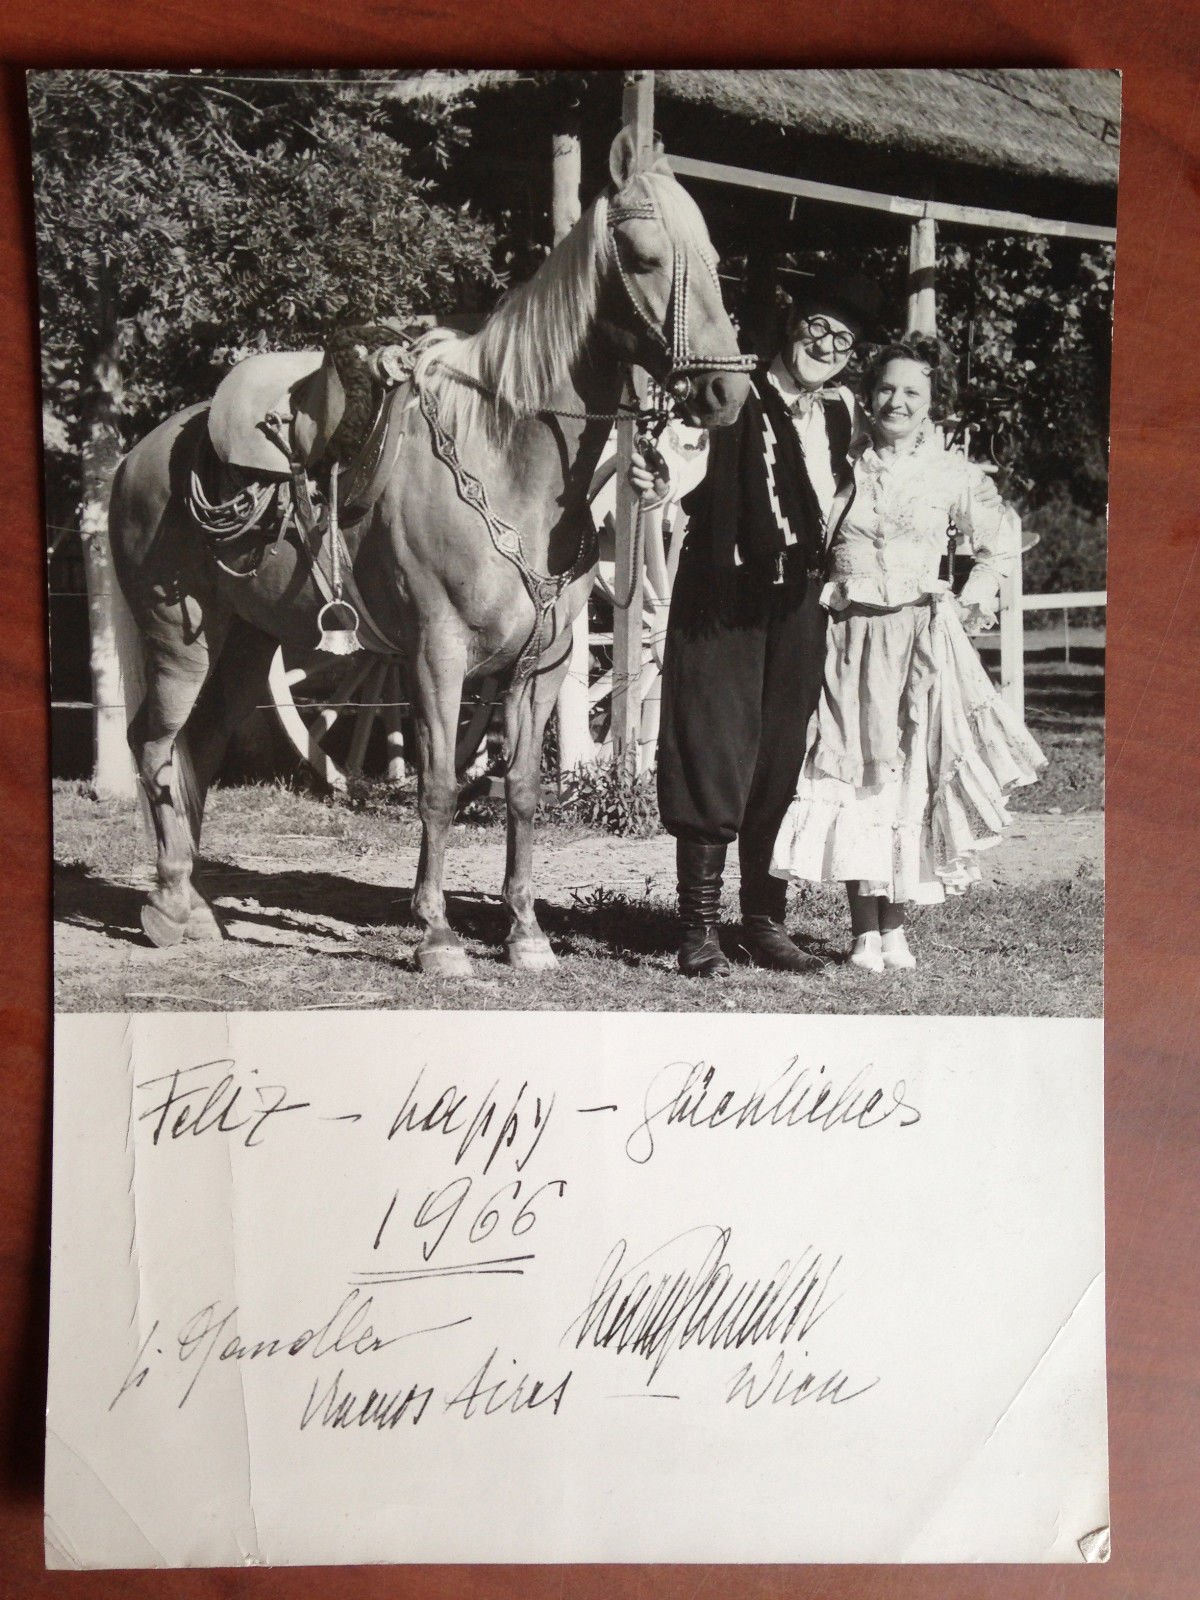 Feliz – happy – glückliches
1966
Buenos Aires – Wien